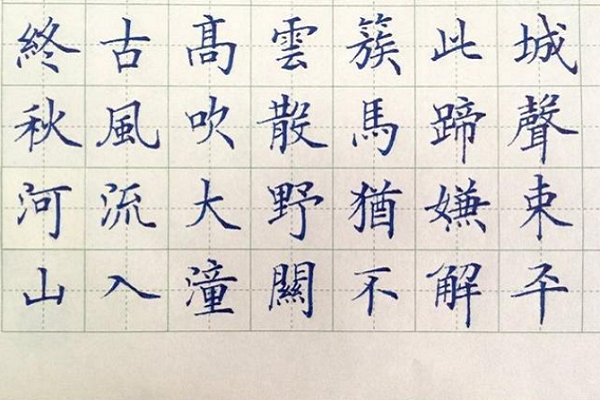 終古髙雲簇此城
秋風吹散馬蹄聲
河流大野猶嫌束
山入潼關不解平